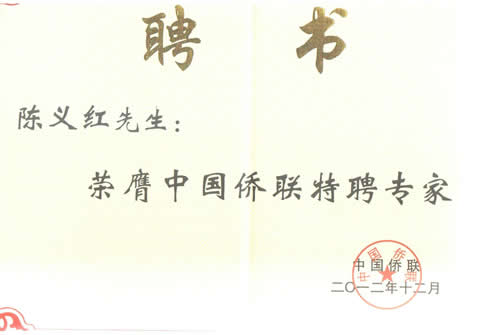 聘书
陈义红先生：
荣膺中国侨联特聘专家
中国侨联
中国侨联
二〇一二年十二月